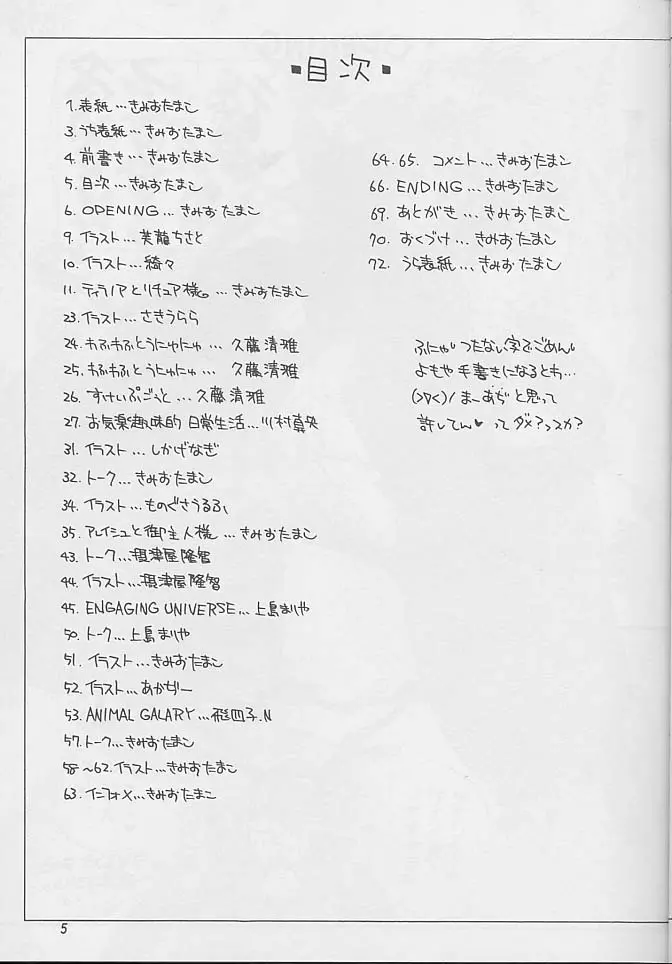 ■目次■
1. 表紙…きみおたまこ
3. うら表紙…きみおたまこ
4. 前書き…きみおたまこ
5. 目次…きみおたまこ
6. OPENING…きみおたまこ
9. イラスト…美龍ちさと
10. イラスト…綺々
11. ティラノアとリチュア様。…きみおたまこ
23. イラスト…さきうらら
24. わふわふとうにゅにゅ…久藤清雅
25. わふわふとうにゅにゅ…久藤清雅
26. すけいぷごっと…久藤清雅
27. お気楽趣味的日常生活…川村真央
31. イラスト…しかげなぎ
32. トーク…きみおたまこ
34. イラスト…ものぐさうるふ
35. アレイシュと御主人様…きみおたまこ
43. トーク…摂津屋隆智
44. イラスト…摂津屋隆智
45. ENGAGING UNIVERSE…上島まりや
50. トーク…上島まりや
51. イラスト…きみおたまこ
52. イラスト…あかぢー
53. ANIMAL GALARY…飛四子.N
57. トーク…きみおたまこ
58〜62. イラスト…きみおたまこ
63. インフォメ…きみおたまこ
64.65. コメント…きみおたまこ
66. ENDING…きみおたまこ
69. あとがき…きみおたまこ
70. おくづけ…きみおたまこ
72. うら表紙…きみおたまこ
ふにゃ つたない字でごめん
よもや手書きになるとわ…
(>▽<)/ まーあぢと思って
許してん♥ってダメ?っスか?
5